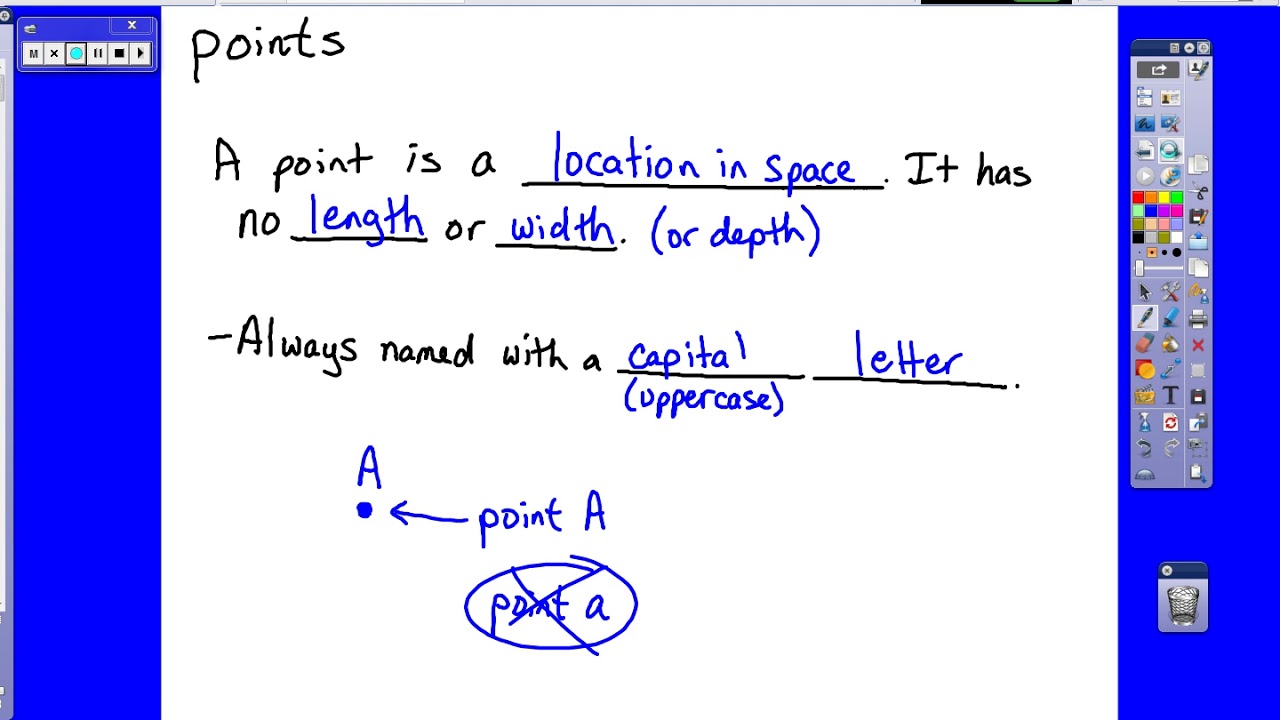 points
A point is a location in space. It has
no length or width. (or depth)
-Always named with a capital letter.
(uppercase)
A
point A
point a
M
T